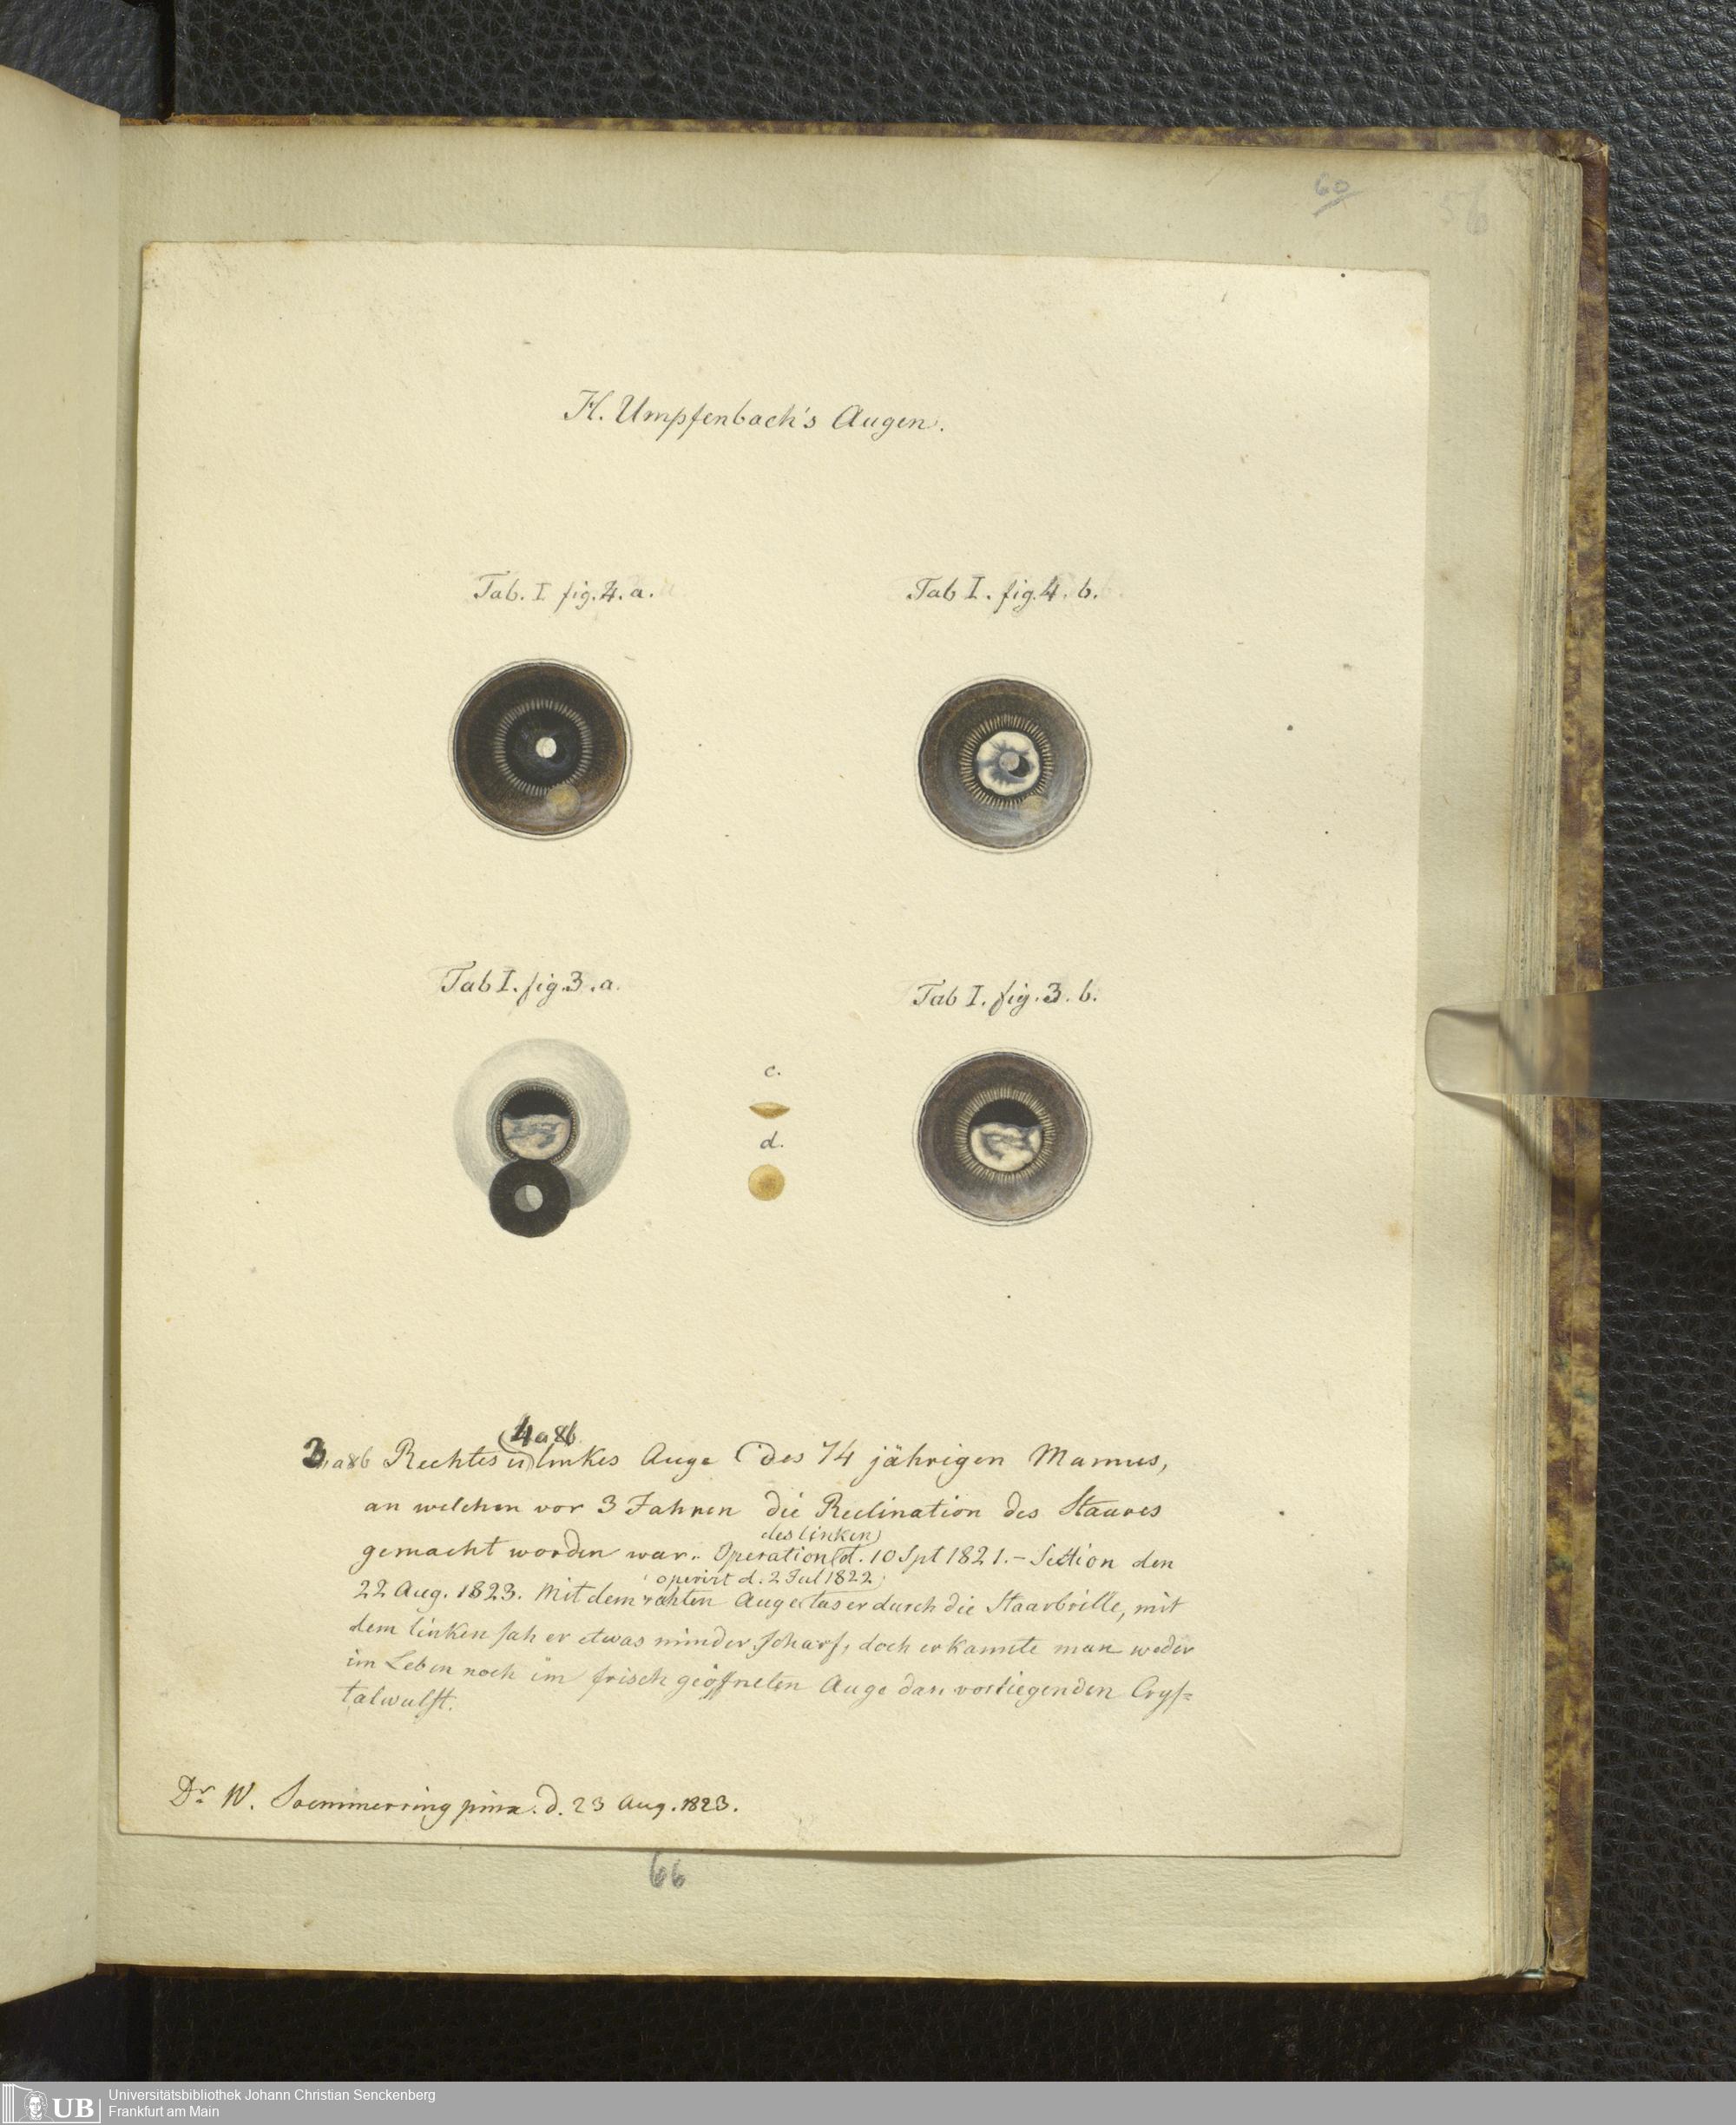 60
56
H. Umpfenbach's Augen.
Tab. I fig. 4. a.
Tab I. fig. 4. b.
Tab I. fig. 3. a.
Tab I. fig. 3. b.
c.
d.
4 a & b
3, a & b Rechtes u linkes Auge des 74 jährigen Mannes,
an welchen vor 3 Jahren die Reclination des Staares
des linken
gemacht worden war. Operation d. 10 Spt 1821. – Section den
operirt d. 2 Jul 1822
22 Aug. 1823. Mit dem rechten Auge las er durch die Staarbrille, mit
dem linken sah er etwas minder scharf, doch erkannte man weder
im Leben noch im frisch geöffneten Auge den vorliegenden Crys=
talwulst.
Dr. W. Soemmerring pinx. d. 23 Aug. 1823.
66
UB
Universitätsbibliothek Johann Christian Senckenberg
Frankfurt am Main